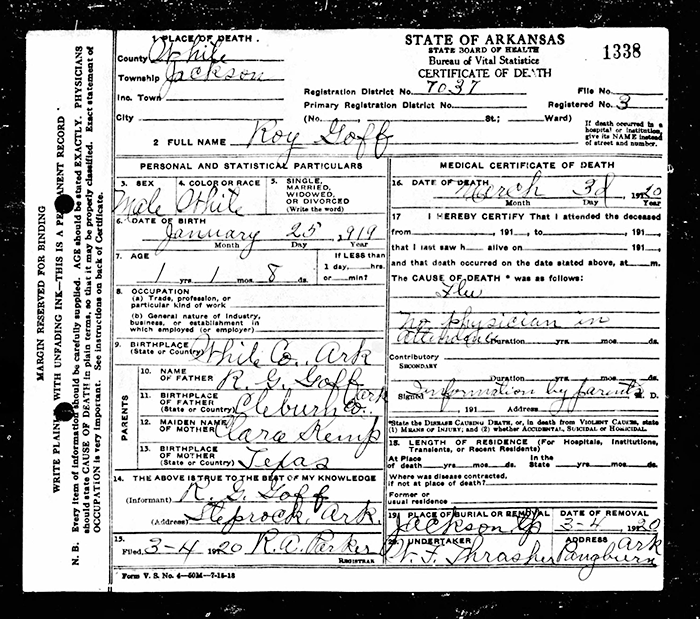 MARGIN RESERVED FOR BINDING
WRITE PLAINLY WITH UNFADING INK—THIS IS A PERMANENT RECORD
N. B. Every item of information should be carefully supplied. AGE should be stated EXACTLY. PHYSICIANS
should state CAUSE OF DEATH in plain terms, so that it may be properly classified. Exact statement of
OCCUPATION is very important. See instructions on back of Certificate.
1 PLACE OF DEATH.
County White
Township Jackson
Inc. Town
City
STATE OF ARKANSAS
STATE BOARD OF HEALTH
Bureau of Vital Statistics
CERTIFICATE OF DEATH
1338
Registration District No. 7037 File No.
Primary Registration District No. Registered No. 3
(No. St.; Ward)
If death occurred in a
hospital or institution,
give its NAME instead
of street and number.
2 FULL NAME Roy Goff
PERSONAL AND STATISTICAL PARTICULARS
3. SEX
Male
4. COLOR OR RACE
White
5. SINGLE,
MARRIED,
WIDOWED,
OR DIVORCED
(Write the word)
6. DATE OF BIRTH
January 25, 1919
Month Day Year
7. AGE
1 yrs 1 mos. 8 ds.
If LESS than
1 day, hrs.
or min?
8. OCCUPATION
(a) Trade, profession, or
particular kind of work
(b) General nature of Industry,
business, or establishment in
which employed (or employer)
9. BIRTHPLACE
(State or Country) White Co., Ark
PARENTS
10. NAME
OF FATHER R. G. Goff
11. BIRTHPLACE
OF FATHER
(State or Country) Cleburn Co. Ark
12. MAIDEN NAME
OF MOTHER Clara Kemp
13. BIRTHPLACE
OF MOTHER
(State or Country) Texas
14. THE ABOVE IS TRUE TO THE BEST OF MY KNOWLEDGE
(Informant) R. G. Goff
(Address) Steprock, Ark.
15.
Filed, 3-4 1920 R. A. Parker
REGISTRAR
Form V. S. No. 4—50M—7-18-18
MEDICAL CERTIFICATE OF DEATH
16. DATE OF DEATH
March 3d 1920
Month Day Year
17 I HEREBY CERTIFY That I attended the deceased
from , 191 , to , 191 ,
that I last saw h alive on , 191 ,
and that death occurred on the date stated above, at m.
The CAUSE OF DEATH * was as follows:
Flu
No physician in
attendance
Duration yrs. mos. ds.
Contributory
SECONDARY
Duration yrs. mos. ds.
Signed Information by parents M. D.
191 Address
*State the DISEASE CAUSING DEATH, or, in death from VIOLENT CAUSES, state
(1) MEANS OF INJURY; and (2) whether ACCIDENTAL, SUICIDAL OR HOMICIDAL.
18. LENGTH OF RESIDENCE (For Hospitals, Institutions,
Transients, or Recent Residents)
At Place In the
of death yrs. mos. ds. State yrs. mos. ds.
Where was disease contracted,
if not at place of death?
Former or
usual residence
19. PLACE OF BURIAL OR REMOVAL
Jackson
DATE OF REMOVAL
3-4 1920
20. UNDERTAKER
W. F. Thrasher
ADDRESS
Pangburn Ark